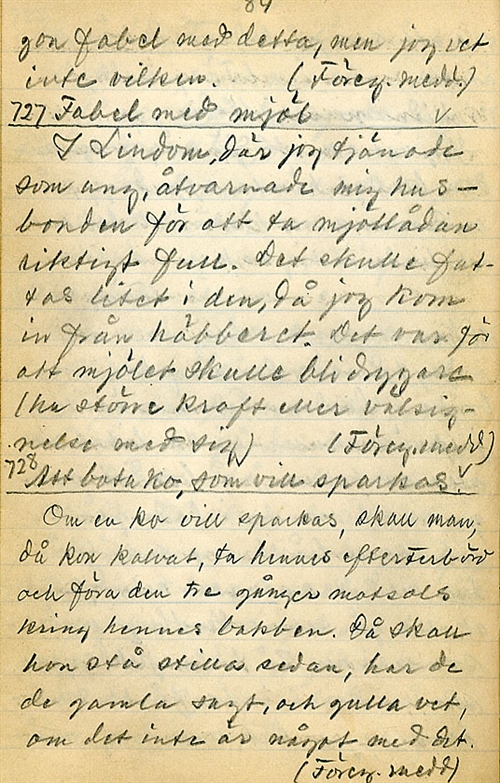 84
gon fabel med detta, men jog vet
inte vilken. (Föreg. medd.)
727 Fabel med mjöl v
I Lindom, där jog tjänade
som ung, åtvarnade mig hus-
bonden för att ta mjöllådan
riktigt full. Det skulle fat-
tas litet i den, då jog kom
in från häbberet. Det var för
att mjölet skulle bli drygare
(ha större kraft eller välsig-
nelse med sig) (Föreg. medd)
728 Att bota ko, som vill sparkas. v
Om en ko vill sparkas, skall man,
då kon kalvat, ta hennes efterbörd
och föra den tre gånger motsols
kring hennes bakben. Då skall
hon stå stilla sedan, har de
de gamla sagt, och gulla vet,
om det inte är något med det.
(Föreg. medd)